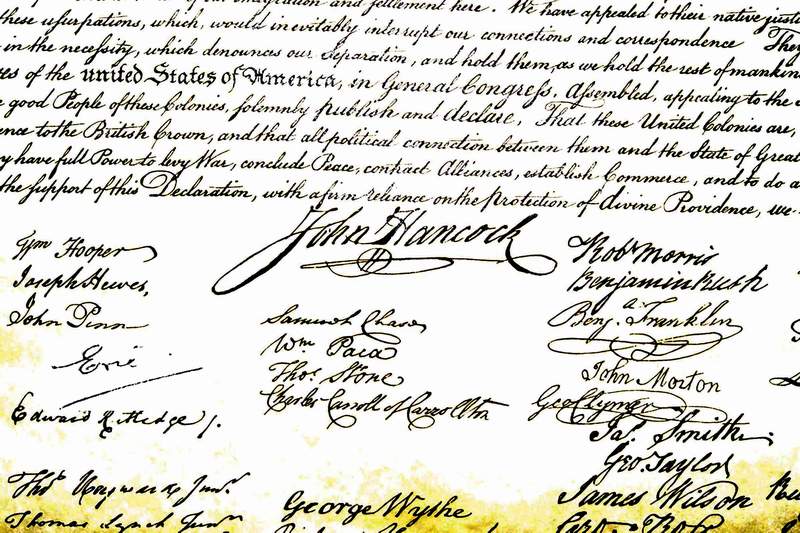 emigration and settlement here. We have appealed to their native justi
these usurpations, which, would inevitably interrupt our connections and correspondence Ther
in the necessity, which denounces our Separation, and hold them, as we hold the rest of mankin
es of the united States of America, in General Congress, Assembled, appealing to the
good People of these Colonies, solemnly publish and declare, That these United Colonies are,
ence to the British Crown, and that all political connection between them and the State of Great
y have full Power to levy War, conclude Peace, contract Alliances, establish Commerce, and to do a
the support of this Declaration, with a firm reliance on the protection of divine Providence, we
John Hancock
Wm Hooper
Joseph Hewes,
John Penn
Edward Rutledge /.
Thos Heyward Junr.
Thomas Lynch Junr
Samuel Chase
Wm Paca
Thos Stone
Charles Carroll of Carrollton
George Wythe
Robt Morris
Benjamin Rush
Benja. Franklin
John Morton
Geo Clymer
Jas. Smith.
Geo. Taylor
James Wilson
Geo. Ross